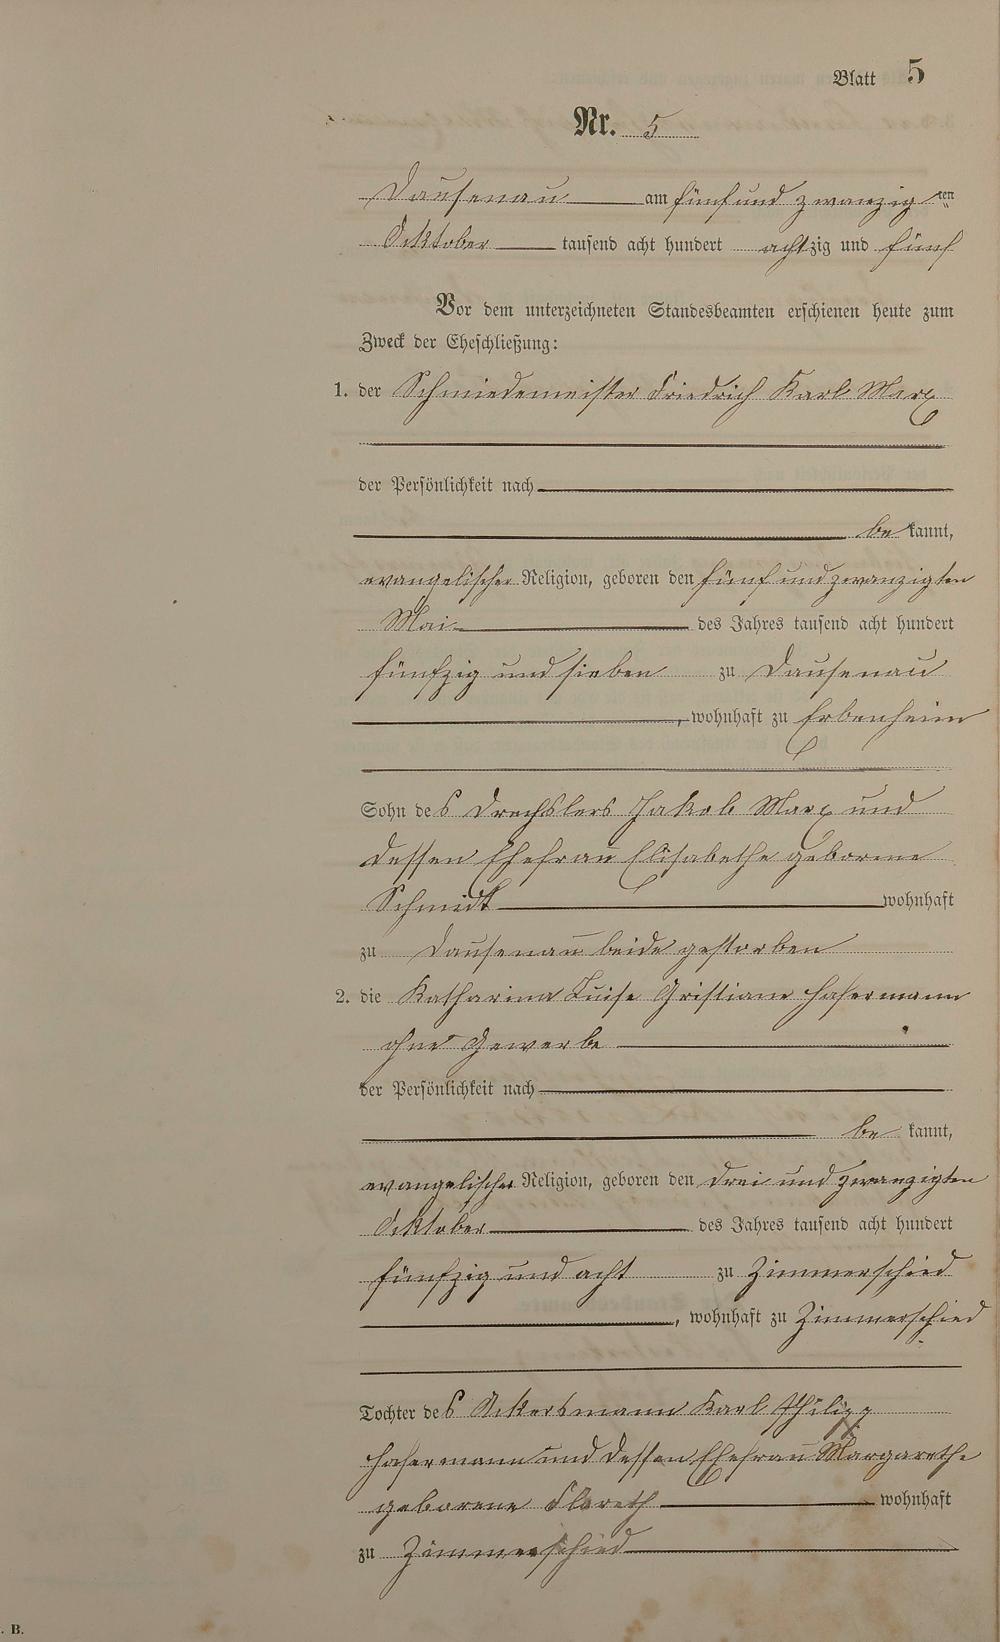 Blatt 5
Nr. 5
Dausenau am fünfund zwanzig ten
Ocktober tausend acht hundert achtzig und fünf
Vor dem unterzeichneten Standesbeamten erschienen heute zum
Zweck der Eheschließung:
1. der Schmiedemeister Friedrich Karl Marx
der Persönlichkeit nach
be kannt,
evangelischer Religion, geboren den fünf und zwanzigten
Mai des Jahres tausend acht hundert
fünfzig und sieben zu Dausenau
, wohnhaft zu Erbenheim
Sohn des Drechslers Jakob Marx und
dessen Ehefrau Elisabethe geborene
Schmidt wohnhaft
zu Dausenau beide gestorben
2. die Katharina Luise Christiane Hasermann
ohne Gewerbe
der Persönlichkeit nach
be kannt,
evangelischer Religion, geboren den drei und zwanzigten
Ocktober des Jahres tausend acht hundert
fünfzig und acht zu Zimmerschied
, wohnhaft zu Zimmerschied
Tochter des Ackersmann Karl Philipp
Hasermann und dessen Ehefrau Margarethe
geborene wohnhaft
zu Zimmerschied
. B.